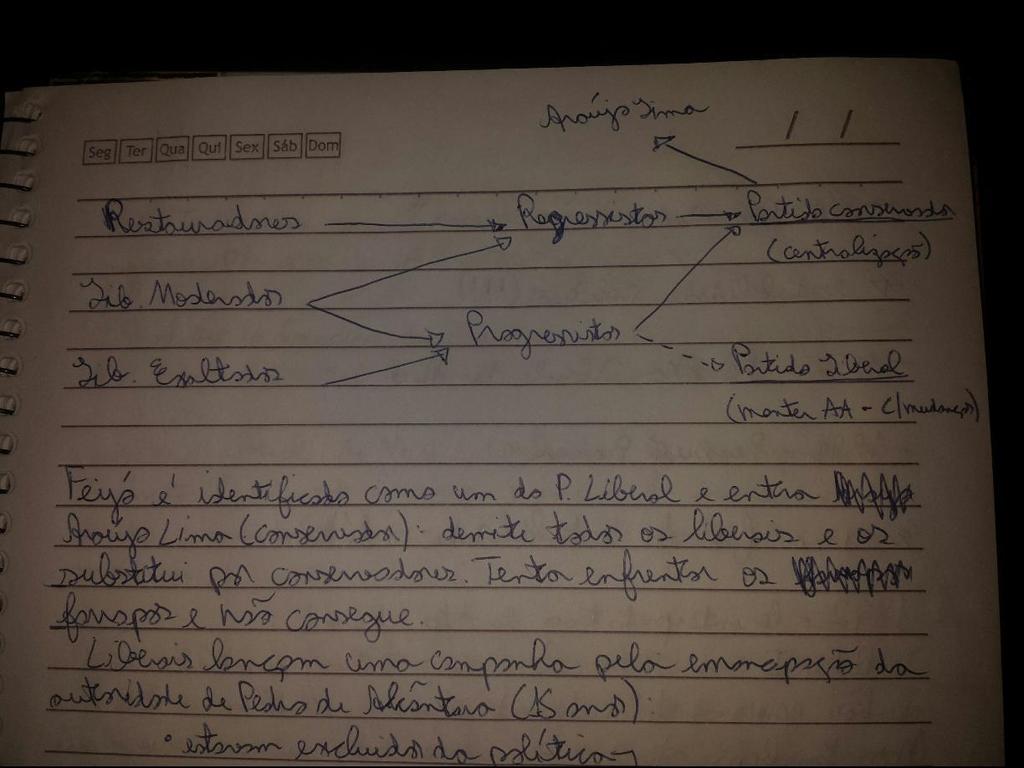 Araújo Lima
/ /
Seg Ter Qua Qui Sex Sáb Dom
Restauradores Regressistas Partido conservador
(centralização)
Lib. Moderados
Progressistas
Lib. Exaltados Partido Liberal
(manter AA - c/ mudanças)
Feijó é identificado como um do P. Liberal e entra
Araújo Lima (conservador): demite todos os liberais e os
substitui por conservadores. Tenta enfrentar os
farrapos e não consegue.
Liberais lançam uma campanha pela emancipação da
autoridade de Pedro de Alcântara (15 anos):
• estavam excluidos da política